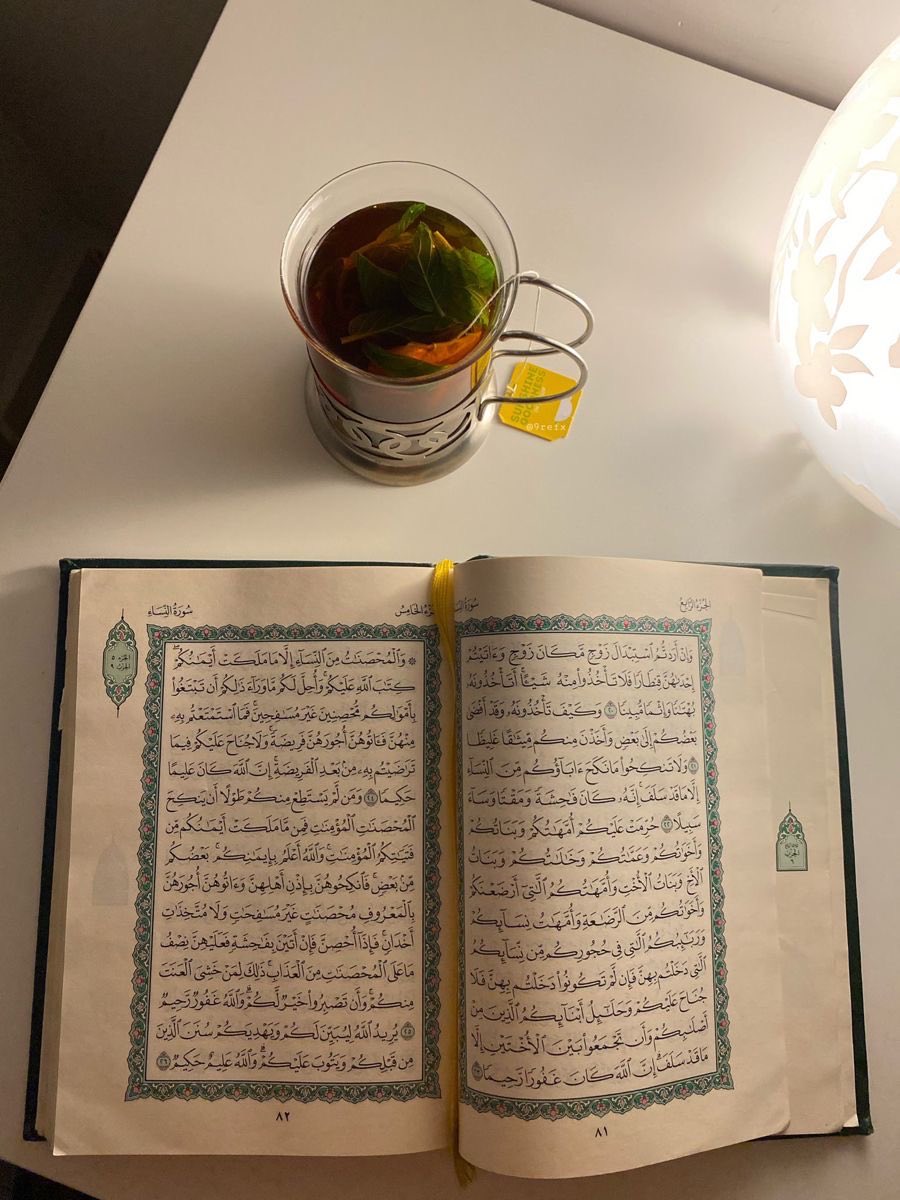 @9refx
الجُزْءُ الرَّابِعُ
سُورَةُ النِّسَاءِ
وَإِنْ أَرَدتُّمُ ٱسْتِبْدَالَ زَوْجٍ مَّكَانَ زَوْجٍ وَءَاتَيْتُمْ
إِحْدَىٰهُنَّ قِنطَارًا فَلَا تَأْخُذُوا۟ مِنْهُ شَيْـًٔا ۚ أَتَأْخُذُونَهُۥ
بُهْتَـٰنًا وَإِثْمًا مُّبِينًا ٢٠ وَكَيْفَ تَأْخُذُونَهُۥ وَقَدْ أَفْضَىٰ
بَعْضُكُمْ إِلَىٰ بَعْضٍ وَأَخَذْنَ مِنكُم مِّيثَـٰقًا غَلِيظًا
٢١ وَلَا تَنكِحُوا۟ مَا نَكَحَ ءَابَآؤُكُم مِّنَ ٱلنِّسَآءِ
إِلَّا مَا قَدْ سَلَفَ ۚ إِنَّهُۥ كَانَ فَـٰحِشَةً وَمَقْتًا وَسَآءَ
سَبِيلًا ٢٢ حُرِّمَتْ عَلَيْكُمْ أُمَّهَـٰتُكُمْ وَبَنَاتُكُمْ
وَأَخَوَٰتُكُمْ وَعَمَّـٰتُكُمْ وَخَـٰلَـٰتُكُمْ وَبَنَاتُ
ٱلْأَخِ وَبَنَاتُ ٱلْأُخْتِ وَأُمَّهَـٰتُكُمُ ٱلَّـٰتِىٓ أَرْضَعْنَكُمْ
وَأَخَوَٰتُكُم مِّنَ ٱلرَّضَـٰعَةِ وَأُمَّهَـٰتُ نِسَآئِكُمْ
وَرَبَـٰٓئِبُكُمُ ٱلَّـٰتِى فِى حُجُورِكُم مِّن نِّسَآئِكُمُ
ٱلَّـٰتِى دَخَلْتُم بِهِنَّ فَإِن لَّمْ تَكُونُوا۟ دَخَلْتُم بِهِنَّ فَلَا
جُنَاحَ عَلَيْكُمْ وَحَلَـٰٓئِلُ أَبْنَآئِكُمُ ٱلَّذِينَ مِنْ
أَصْلَـٰبِكُمْ وَأَن تَجْمَعُوا۟ بَيْنَ ٱلْأُخْتَيْنِ إِلَّا
مَا قَدْ سَلَفَ ۗ إِنَّ ٱللَّهَ كَانَ غَفُورًا رَّحِيمًا ٢٣
٨١
الجُزْءُ الخَامِسُ
سُورَةُ النِّسَاءِ
الجزء ٥
الحزب ٩
۞ وَٱلْمُحْصَنَـٰتُ مِنَ ٱلنِّسَآءِ إِلَّا مَا مَلَكَتْ أَيْمَـٰنُكُمْ ۖ
كِتَـٰبَ ٱللَّهِ عَلَيْكُمْ ۚ وَأُحِلَّ لَكُم مَّا وَرَآءَ ذَٰلِكُمْ أَن تَبْتَغُوا۟
بِأَمْوَٰلِكُم مُّحْصِنِينَ غَيْرَ مُسَـٰفِحِينَ ۚ فَمَا ٱسْتَمْتَعْتُم بِهِۦ
مِنْهُنَّ فَـَٔاتُوهُنَّ أُجُورَهُنَّ فَرِيضَةً ۚ وَلَا جُنَاحَ عَلَيْكُمْ فِيمَا
تَرَٰضَيْتُم بِهِۦ مِنۢ بَعْدِ ٱلْفَرِيضَةِ ۚ إِنَّ ٱللَّهَ كَانَ عَلِيمًا
حَكِيمًا ٢٤ وَمَن لَّمْ يَسْتَطِعْ مِنكُمْ طَوْلًا أَن يَنكِحَ
ٱلْمُحْصَنَـٰتِ ٱلْمُؤْمِنَـٰتِ فَمِن مَّا مَلَكَتْ أَيْمَـٰنُكُم مِّن
فَتَيَـٰتِكُمُ ٱلْمُؤْمِنَـٰتِ ۚ وَٱللَّهُ أَعْلَمُ بِإِيمَـٰنِكُم ۚ بَعْضُكُم
مِّنۢ بَعْضٍ ۚ فَٱنكِحُوهُنَّ بِإِذْنِ أَهْلِهِنَّ وَءَاتُوهُنَّ أُجُورَهُنَّ
بِٱلْمَعْرُوفِ مُحْصَنَـٰتٍ غَيْرَ مُسَـٰفِحَـٰتٍ وَلَا مُتَّخِذَٰتِ
أَخْدَانٍ ۚ فَإِذَآ أُحْصِنَّ فَإِنْ أَتَيْنَ بِفَـٰحِشَةٍ فَعَلَيْهِنَّ نِصْفُ
مَا عَلَى ٱلْمُحْصَنَـٰتِ مِنَ ٱلْعَذَابِ ۚ ذَٰلِكَ لِمَنْ خَشِىَ ٱلْعَنَتَ
مِنكُمْ ۚ وَأَن تَصْبِرُوا۟ خَيْرٌ لَّكُمْ ۗ وَٱللَّهُ غَفُورٌ رَّحِيمٌ
٢٥ يُرِيدُ ٱللَّهُ لِيُبَيِّنَ لَكُمْ وَيَهْدِيَكُمْ سُنَنَ ٱلَّذِينَ
مِن قَبْلِكُمْ وَيَتُوبَ عَلَيْكُمْ ۗ وَٱللَّهُ عَلِيمٌ حَكِيمٌ ٢٦
٨٢